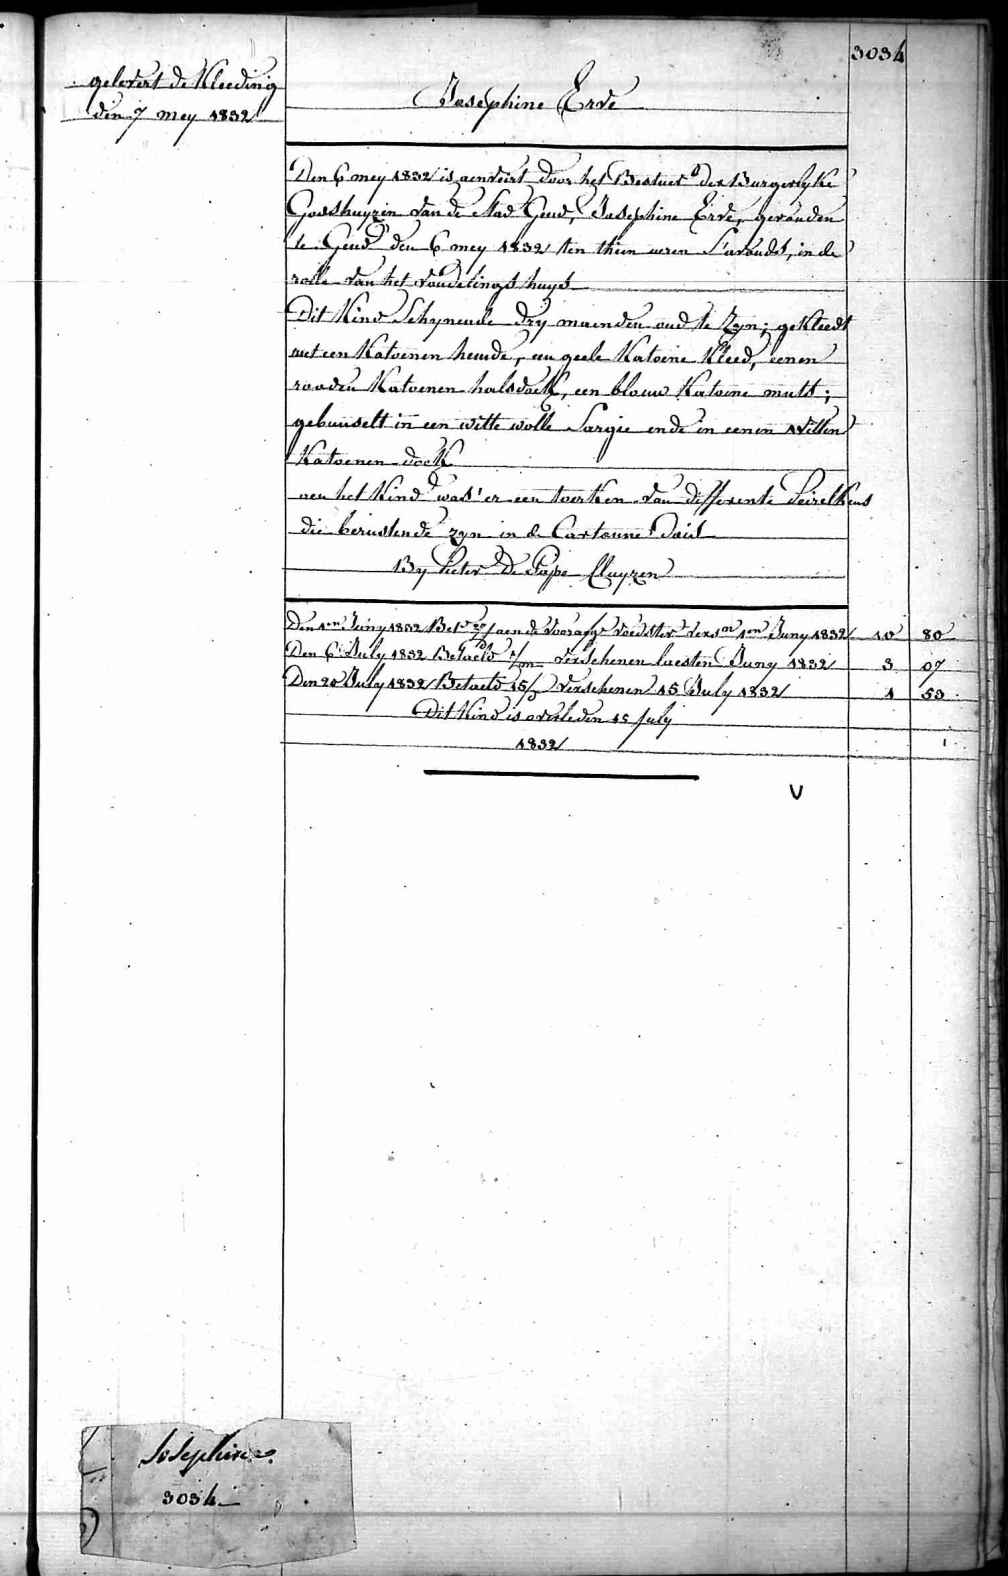 3034
gelevert de Kleeding
den 7 mey 1832
Josephine Erve
Den 6 mey 1832 is aenveirt door het Bestuer der Burgerlyke
Godshuyzen van de Stad Gend, Josephine Erve, gevonden
te Gend den 6 mey 1832 ten thien uren S'avonds, in de
rolle van het vondelings huys
Dit Kind Schynende dry maenden oud te zyn; gekleedt
met een Katoenen hemde, een geele Katoene Kleed, eenen
rooden Katoenen halsdoek, een blouw Katoene muts;
gebunselt in een witte wolle Sargie ende in eenen witten
Katoenen doek
aen het Kind was'er een toerken van differente Peirelkens
die berustende zyn in de Cartonne
By Pieter De Pape Cluyzen
Den 1en Juny 1832 Bet aen de voorafge voedster vers 1en Juny 1832 10 80
Den 6 July 1832 Betaeld 1/m verschenen laesten Juny 1832 3 07
Den 20 July 1832 Betaeld 15/ verschenen 15 July 1832 1 53
Dit Kind is overleden 15 July
1832
V
Josephine
3034